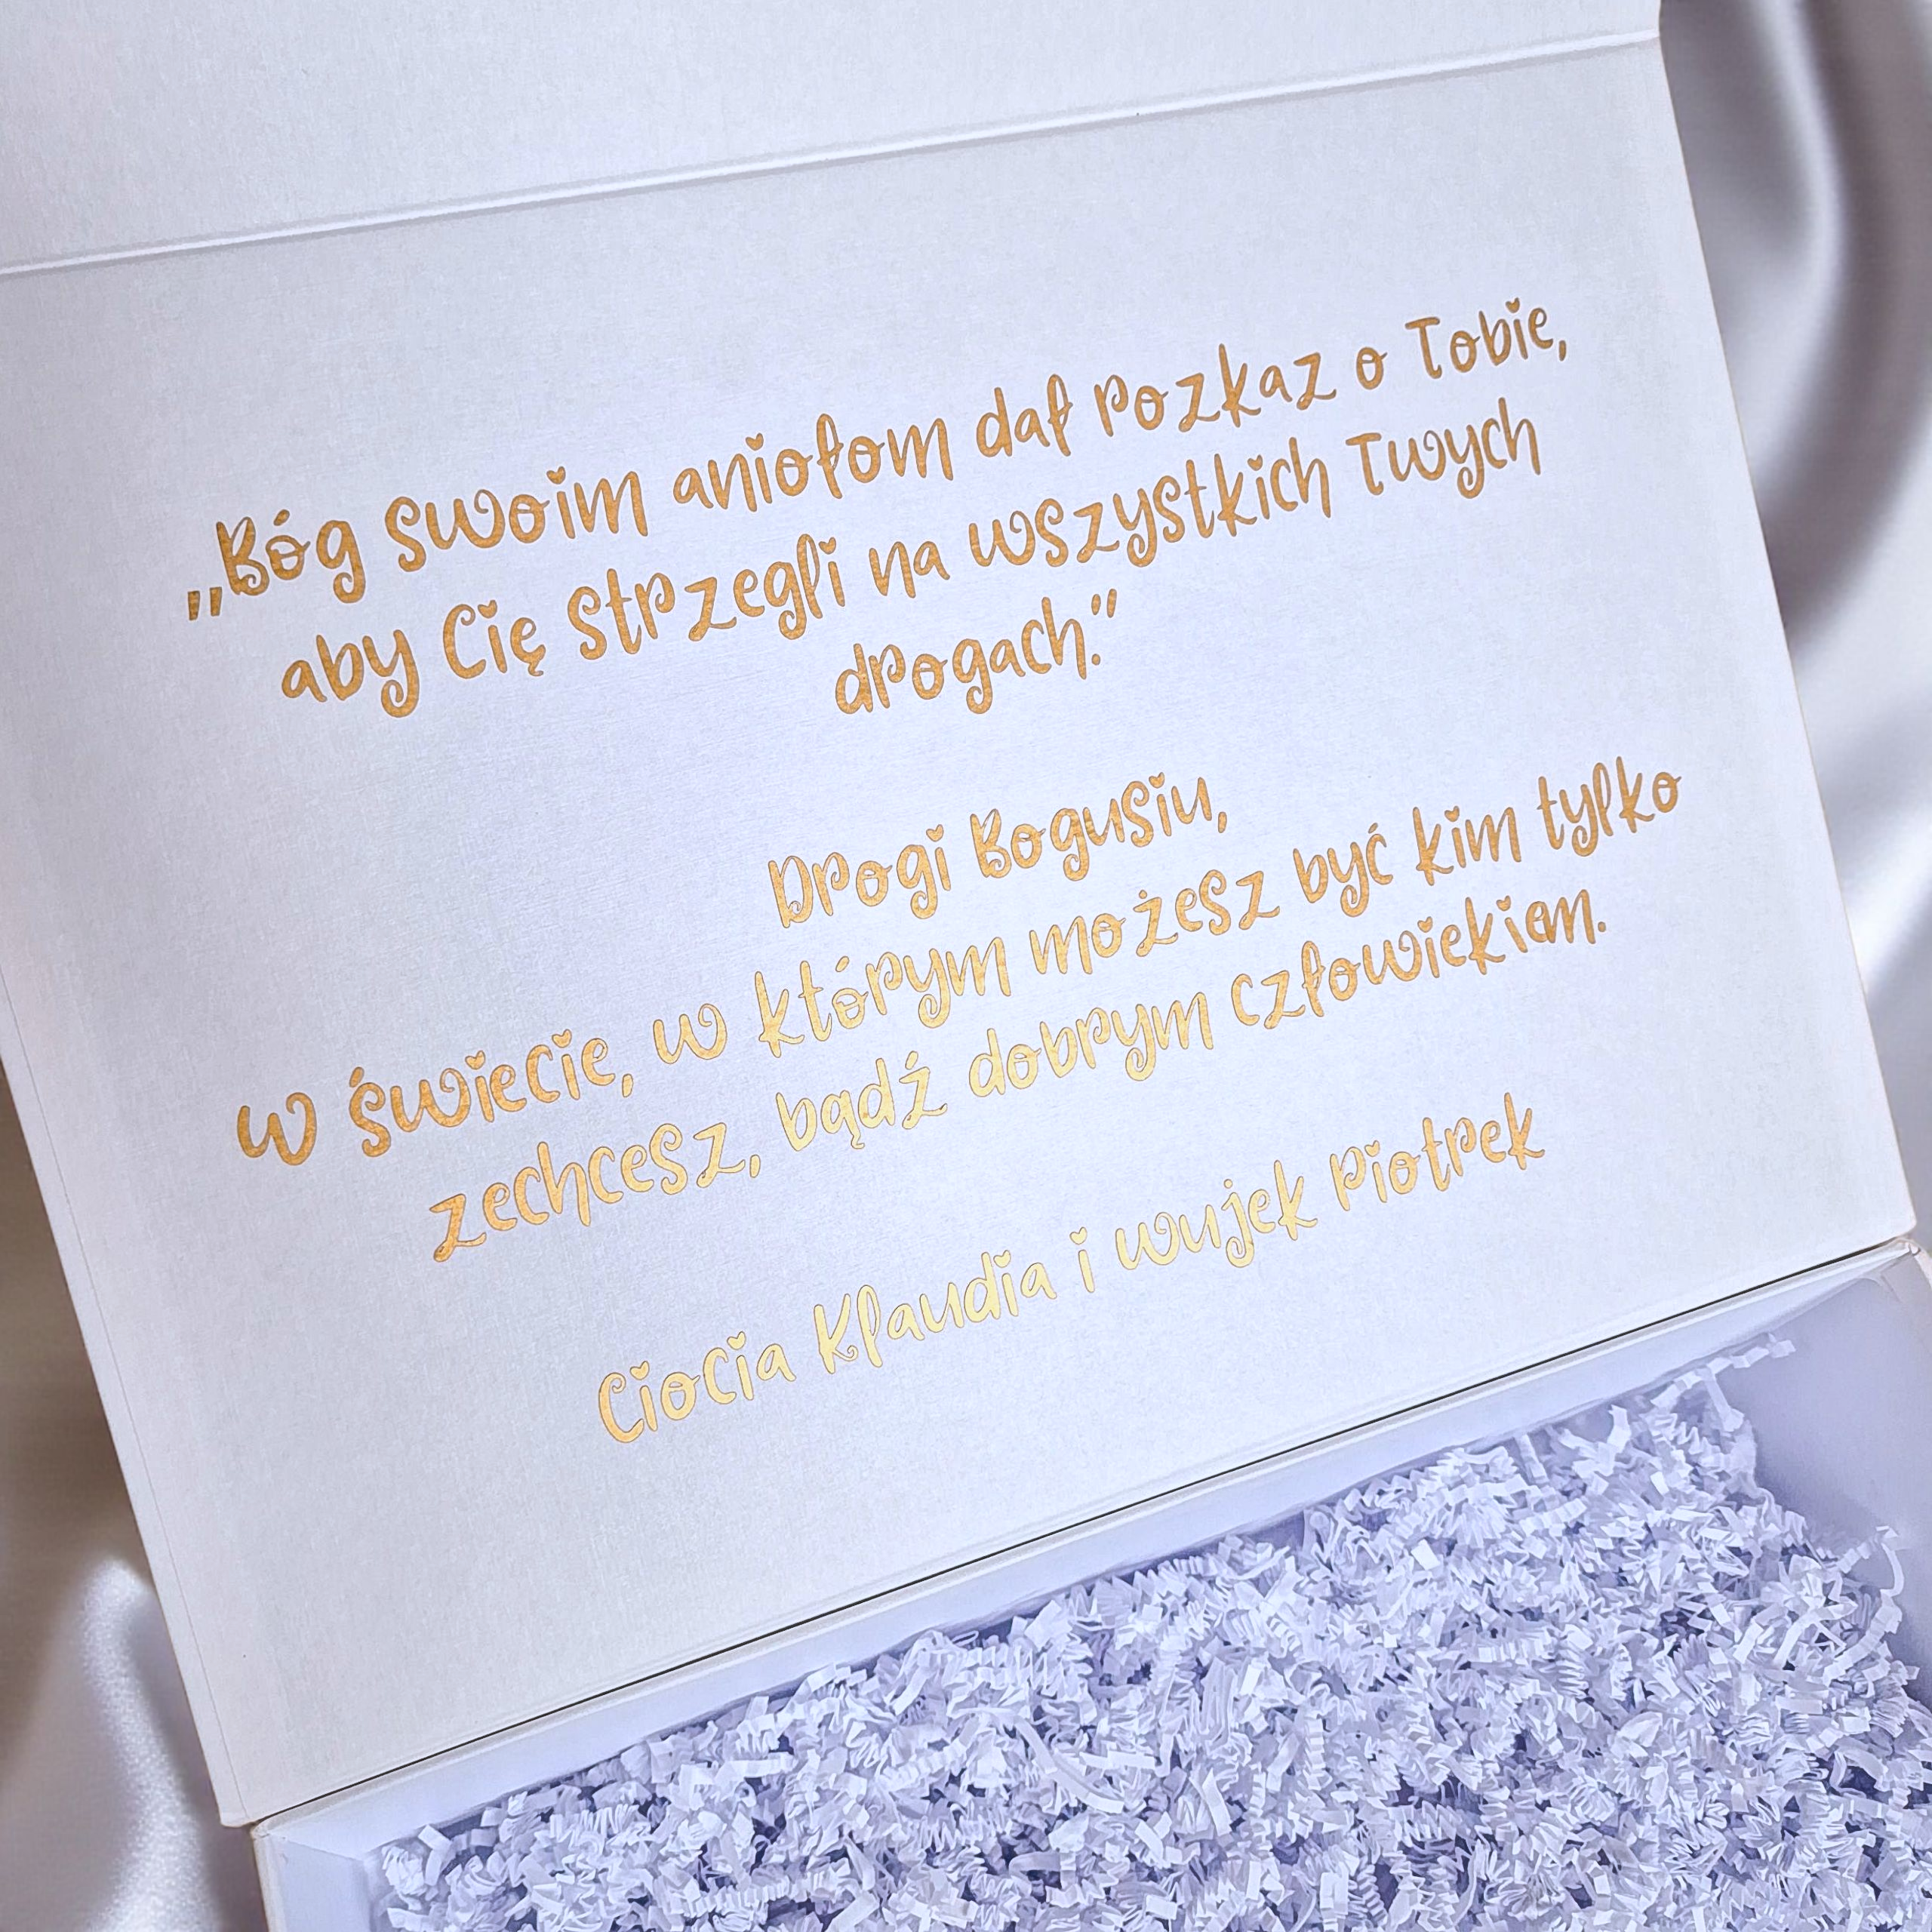 „Bóg swoim aniołom dał rozkaz o Tobie,
aby Cię strzegli na wszystkich Twych
drogach.”
Drogi Bogusiu,
w świecie, w którym możesz być kim tylko
zechcesz, bądź dobrym człowiekiem.
Ciocia Klaudia i wujek Piotrek